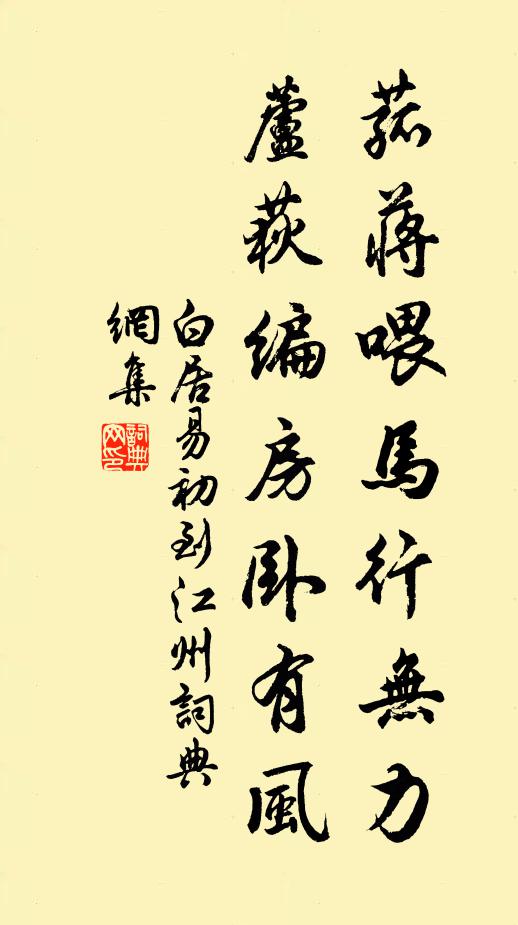 菰蔣喂馬行無力
蘆荻編房臥有風
白居易初到江州詞典
網集
詞典網印